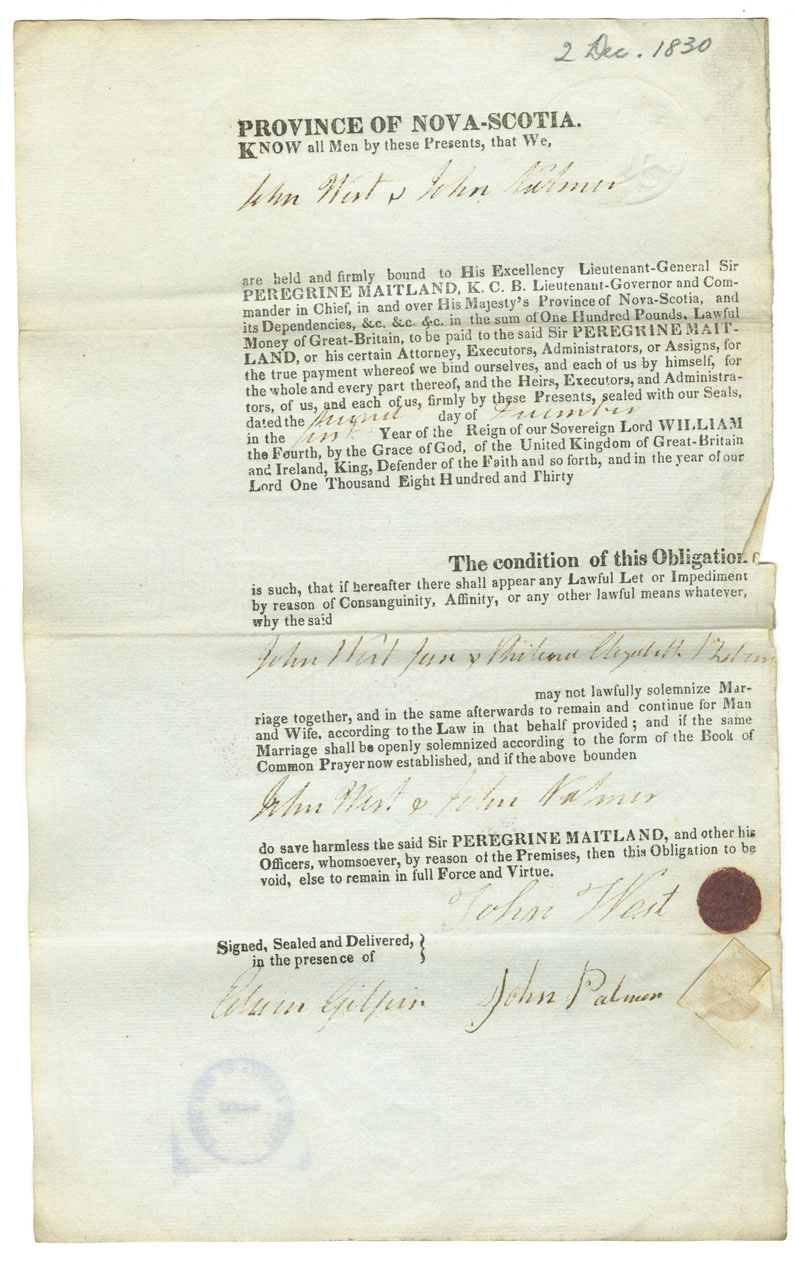 2 Dec. 1830
PROVINCE OF NOVA-SCOTIA.
KNOW all Men by these Presents, that We,
John West & John Palmer
are held and firmly bound to His Excellency Lieutenant-General Sir
PEREGRINE MAITLAND, K. C. B. Lieutenant-Governor and Com-
mander in Chief, in and over His Majesty's Province of Nova-Scotia, and
its Dependencies, &c. &c. &c. in the sum of One Hundred Pounds, Lawful
Money of Great-Britain, to be paid to the said Sir PEREGRINE MAIT-
LAND, or his certain Attorney, Executors, Administrators, or Assigns, for
the true payment whereof we bind ourselves, and each of us by himself, for
the whole and every part thereof, and the Heirs, Executors, and Administra-
tors, of us, and each of us, firmly by these Presents, sealed with our Seals,
dated the second day of December
in the first Year of the Reign of our Sovereign Lord WILLIAM
the Fourth, by the Grace of God, of the United Kingdom of Great-Britain
and Ireland, King, Defender of the Faith and so forth, and in the year of our
Lord One Thousand Eight Hundred and Thirty
The condition of this Obligation
is such, that if hereafter there shall appear any Lawful Let or Impediment
by reason of Consanguinity, Affinity, or any other lawful means whatever,
why the said
John West Jun & Elizabeth Palmer
may not lawfully solemnize Mar-
riage together, and in the same afterwards to remain and continue for Man
and Wife, according to the Law in that behalf provided; and if the same
Marriage shall be openly solemnized according to the form of the Book of
Common Prayer now established, and if the above bounden
John West & John Palmer
do save harmless the said Sir PEREGRINE MAITLAND, and other his
Officers, whomsoever, by reason of the Premises, then this Obligation to be
void, else to remain in full Force and Virtue.
John West
Signed, Sealed and Delivered,
in the presence of
Edwin Gilpin John Palmer